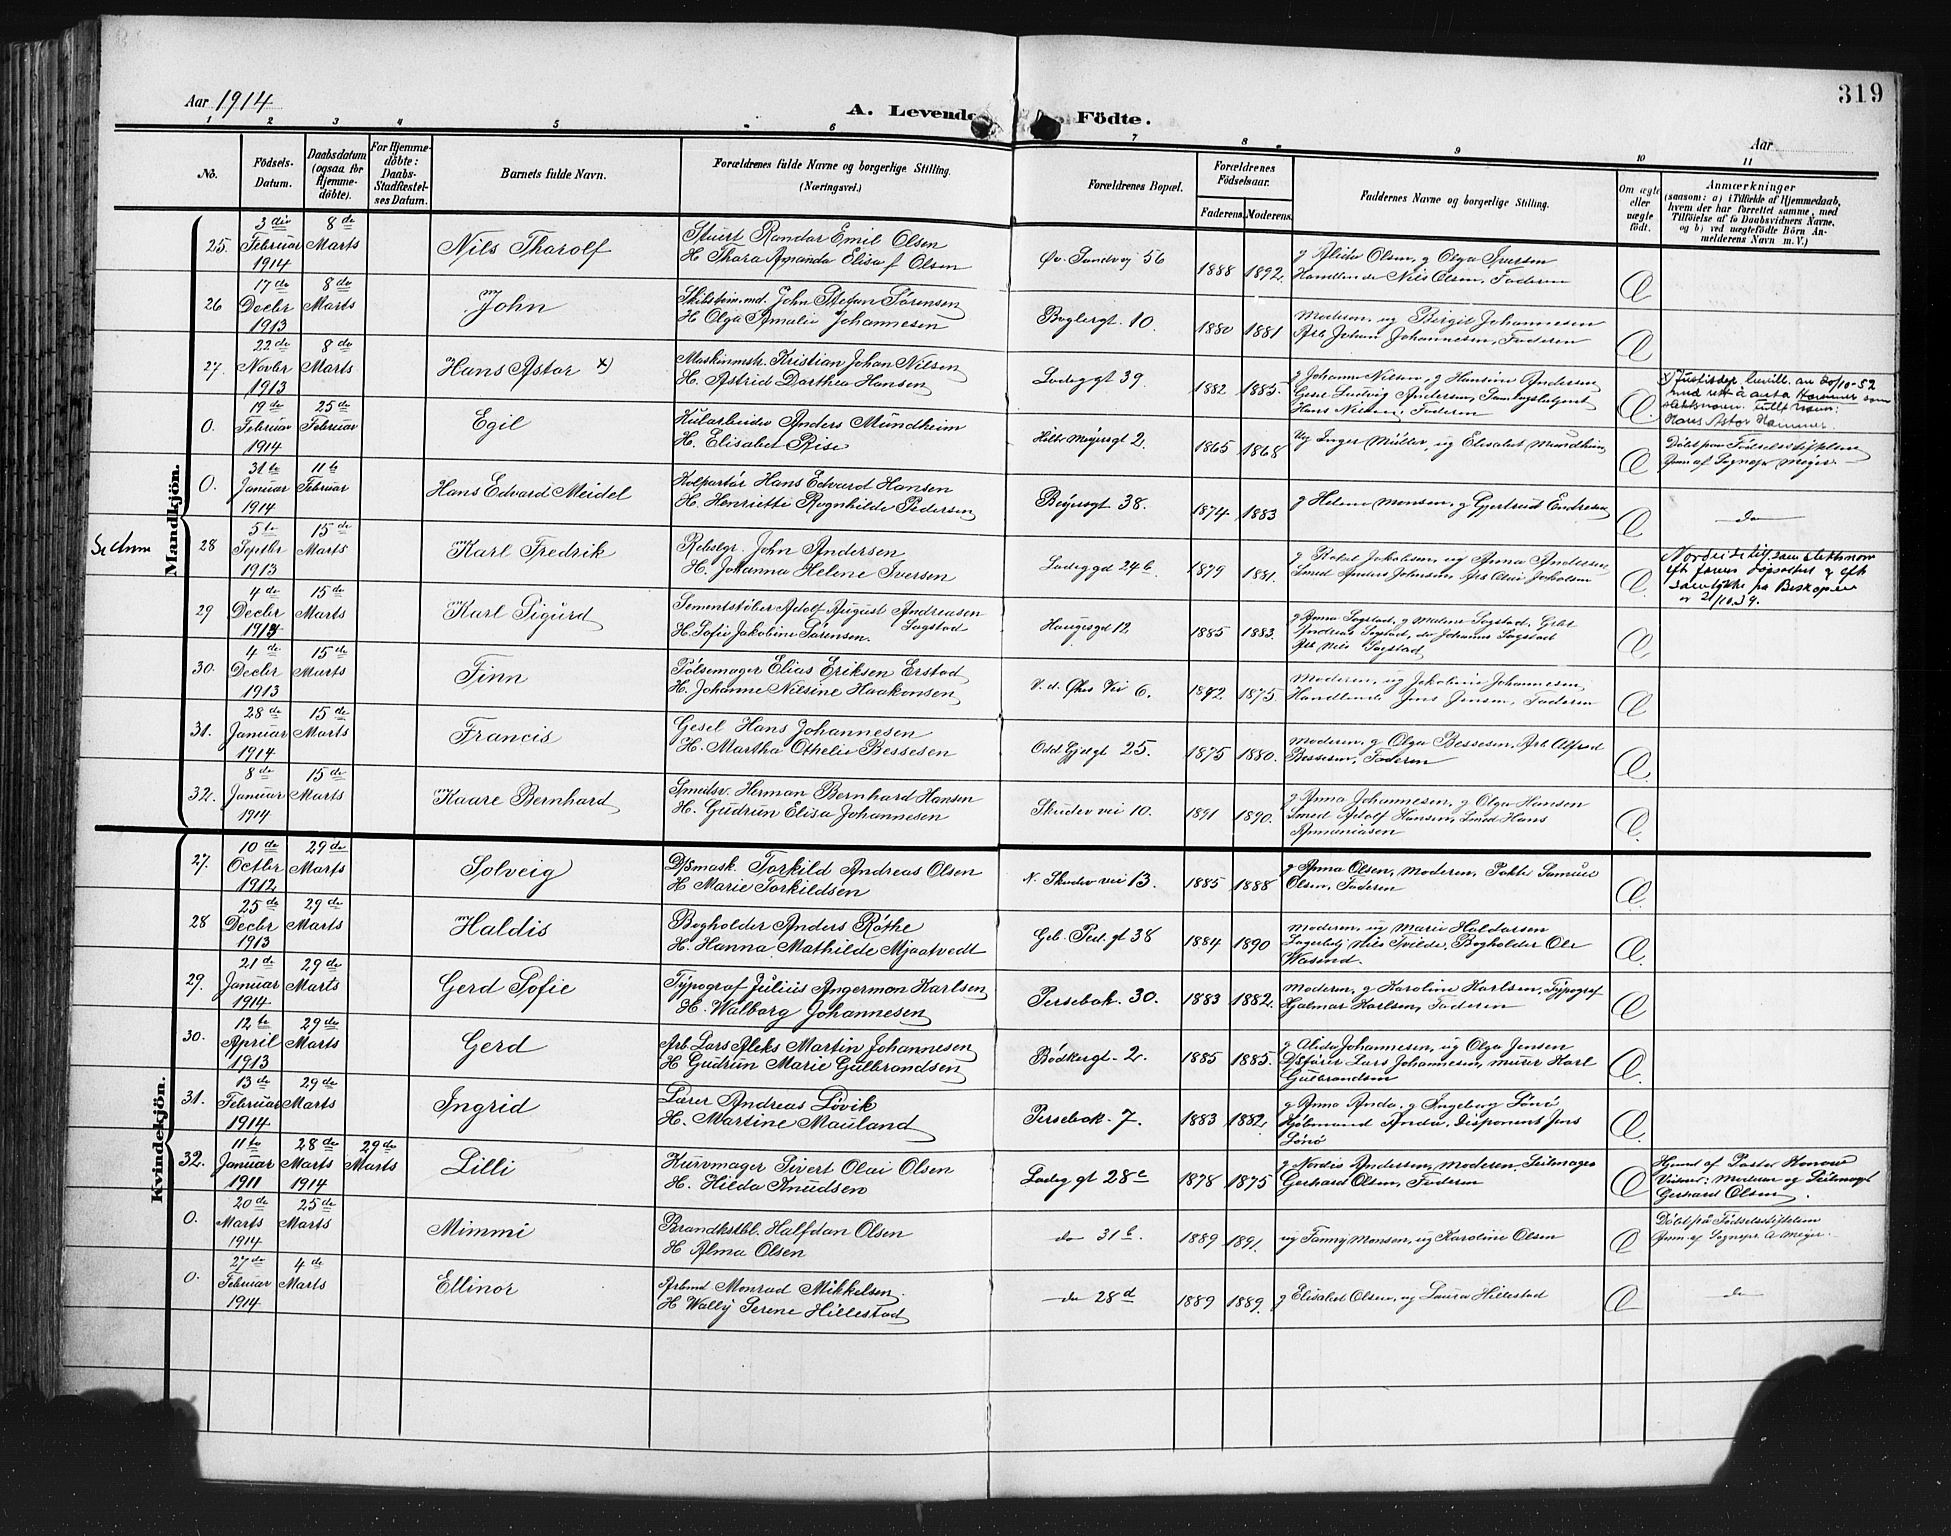 319
Aar 1914
A. Levende Födte.
Aar
1 2 3 4 5 6 7 8 9 10 11
No.
Födsels-Datum.
Daabsdatum (ogsaa for Hjemmedöbte).
For Hjemmedöbte: Daabs-Stadfæstelses Datum.
Barnets fulde Navn.
Forældrenes fulde Navne og borgerlige Stilling. (Næringsvei.)
Forældrenes Bopæl.
Forældrenes Födselsaar.
Faderens. Moderens.
Faddernes Navne og borgerlige Stilling.
Om ægte eller uægte födt.
Anmærkninger (saasom: a) i Tilfælde af Hjemmedaab, hvem der har forrettet samme, med Tilföielse af to Daabsvidners Navne, og b) ved uægtefödte Börn Anmelderens Navn m. V.)
Mandkjön.
25. 3die Februar 1914 8de Marts Nils Tharolf
Stuert Randar Emil Olsen
H Thara Amanda Elisa f Olsen
Øv. Sandvj 56 1888 1892.
g Alida Olsen, g Olga Iversen
Handlende Nils Olsen, Faderen
26 17de Decbr 1913 8de Marts John
Skibstim.md. John Stefan Sörensen
H Olga Amalie Johannesen
Boglergt. 10. 1880 1881
Moderen, ug Birgit Johannesen
Arb Johan Johannesen, Faderen
27. 22de Novbr 1913 8de Marts Hans Astor x)
Maskinmstr. Kristian Johan Nilsen
H. Astrid Darthea Hansen
Ladeg gt 39. 1882 1885.
g Johanne Nilsen, g Hansine Andersen
Gesel Ludvig Andersen,
Hans Nilsen, Faderen
x) Justisdep. bevill. av 20/10-52
med rett å anta Hammer som
slektsnavn. Fullt navn:
Hans Astor Hammer.
0. 19de Februar 1914 25de Februar Egil
Kularbeider Anders Mundheim
H. Elisabet Rise
Holb Meyersgt 2. 1865 1868
ug Inger Müller, ug Elisabet Mundheim
Döbt paa Födselsstiftelsen
Anm af Sognepr Meyer.
0. 31te Januar 1914 11te Februar Hans Edvard Meidel
Kolpartör Hans Edvard Hansen
H. Henriette Ragnhilde Pedersen
Beyersgt 38. 1874 1883
g Helene Monsen, g Gjertrud Endresen
do
28 5te Septbr 1913 15de Marts Karl Fredrik
Rebslgr. John Andersen
H. Johanna Helene Iversen
Ladeg gd 24b. 1879 1881.
g Rakel Jakobsen, ug Anna Andersen
Smed Anders Johnsen,
29 4de Decbr 1913 15de Marts Karl Sigurd
Sementstöber Adolf August Andreasen
Sagstad
H. Sofie Jakobine Sörensen.
Haugesgd 12 1885 1883.
g Anna Sagstad, g Malene Sagstad, Gibt
Andreas Sagstad, do Johannes Sagstad
Arb Nils Sagstad
30. 4de Decbr 1913 15de Marts Finn
Pölsemager Elias Eriksen Erstad
H. Johanne Nilsine Haakonsen
V. d. Øhrs Vei 6. 1875
Moderen, ug Jakobine Johannesen
Handlende Jens Jensen, Faderen
31. 28de Januar 1914 15de Marts Francis
Gesel Hans Johannesen
H. Martha Othelie Bessesen
Odd Gjelgt 25. 1875 1880.
Moderen, g Olga Bessesen, Arb Alfred
Bessesen, Faderen
32. 8de Januar 1914 15de Marts Kaare Bernhard
Smedsv. Herman Bernhard Hansen
H. Gudrun Elisa Johannesen
Skudev vei 10. 1891 1890.
g Anna Johannesen, g Olga Hansen
Smed Adolf Hansen, Smed Hans
Ananiasen
Kvindekjön.
27. 10de Octbr 1912 29de Marts Solveig
D/Smask. Torkild Andreas Olsen
H Marie Torkildsen
N. Skudev vei 13. 1885 1888
g Anna Olsen, Moderen, Samuel
Olsen, Faderen
28 25de Decbr 1913 29de Marts Haldis
Bogholder Anders Röthe
H. Hanna Mathilde Mjaatvedt
Geb. Ped. gt 38 1884 1890
Moderen, ug Marie Haldorsen
Lagerbetj Nils Tvilde, Bogholder Ole
Wasend.
29. 21de Januar 1914 29de Marts Gerd Sofie
Typograf Julius Angermon Karlsen
H. Walborg Johannesen
Persebak. 30. 1883 1882.
Moderen, g Karoline Karlsen, Typograf
Hjalmar Karlsen, Faderen
30. 12te April 1913 29de Marts Gerd
Arb. Lars Aleks Martin Johannesen
H Gudrun Marie Gulbrandsen
Bödkergt. 2. 1885 1885.
g Alida Johannesen, ug Olga Jensen
D/Sförer Lars Johannesen, murer Karl
Gulbrandsen
31. 13de Februar 1914 29de Marts Ingrid
Lærer Andreas Lövik
H. Martine Mauland
Persebak. 7. 1883 1882.
g Anna Anda, g Ingeborg Sönö
Kjöbmand Anda, Disponent Jens
Sönö
32. 11te Januar 1911 28de Marts 1914 29de Marts Lilli
Kurvmager Sivert Olai Olsen
H. Hilda Knudsen
Ladeg gt 28c 1878 1875
g Nordis Andersen, Moderen, Seilmager
Gerhard Olsen, Faderen
Hjemd af Pastor
Vidner: Moderen og Seilmager
Gerhard Olsen.
0. 20de Marts 1914 25de Marts Mimmi
Brandkstbl. Halfdan Olsen
H Alma Olsen
do 31b. 1889 1891.
ug Fanny Monsen, ug Karoline Olsen
Döbt på Födselsstiftelsen
Anm af Sognepr. A Meyer.
0. 27de Februar 1914 4de Marts Ellinor
Arbmd Monrad Mikkelsen.
H Wally Serene Hillestad
do 28d 1889 1889.
g Elisabet Olsen, ug Laura Hillestad
do